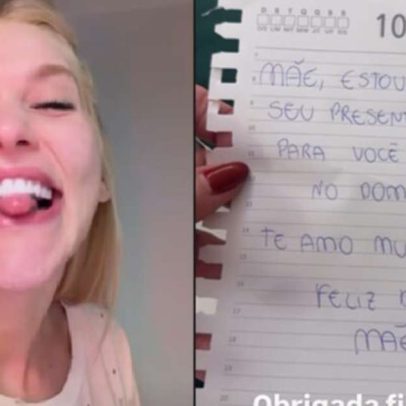 D S T Q Q S S
10
MÃE, ESTOU
SEU PRESEN
PARA VOCÊ
NO DOM
TE AMO MU
FELIZ
MÃE
Obrigada fi